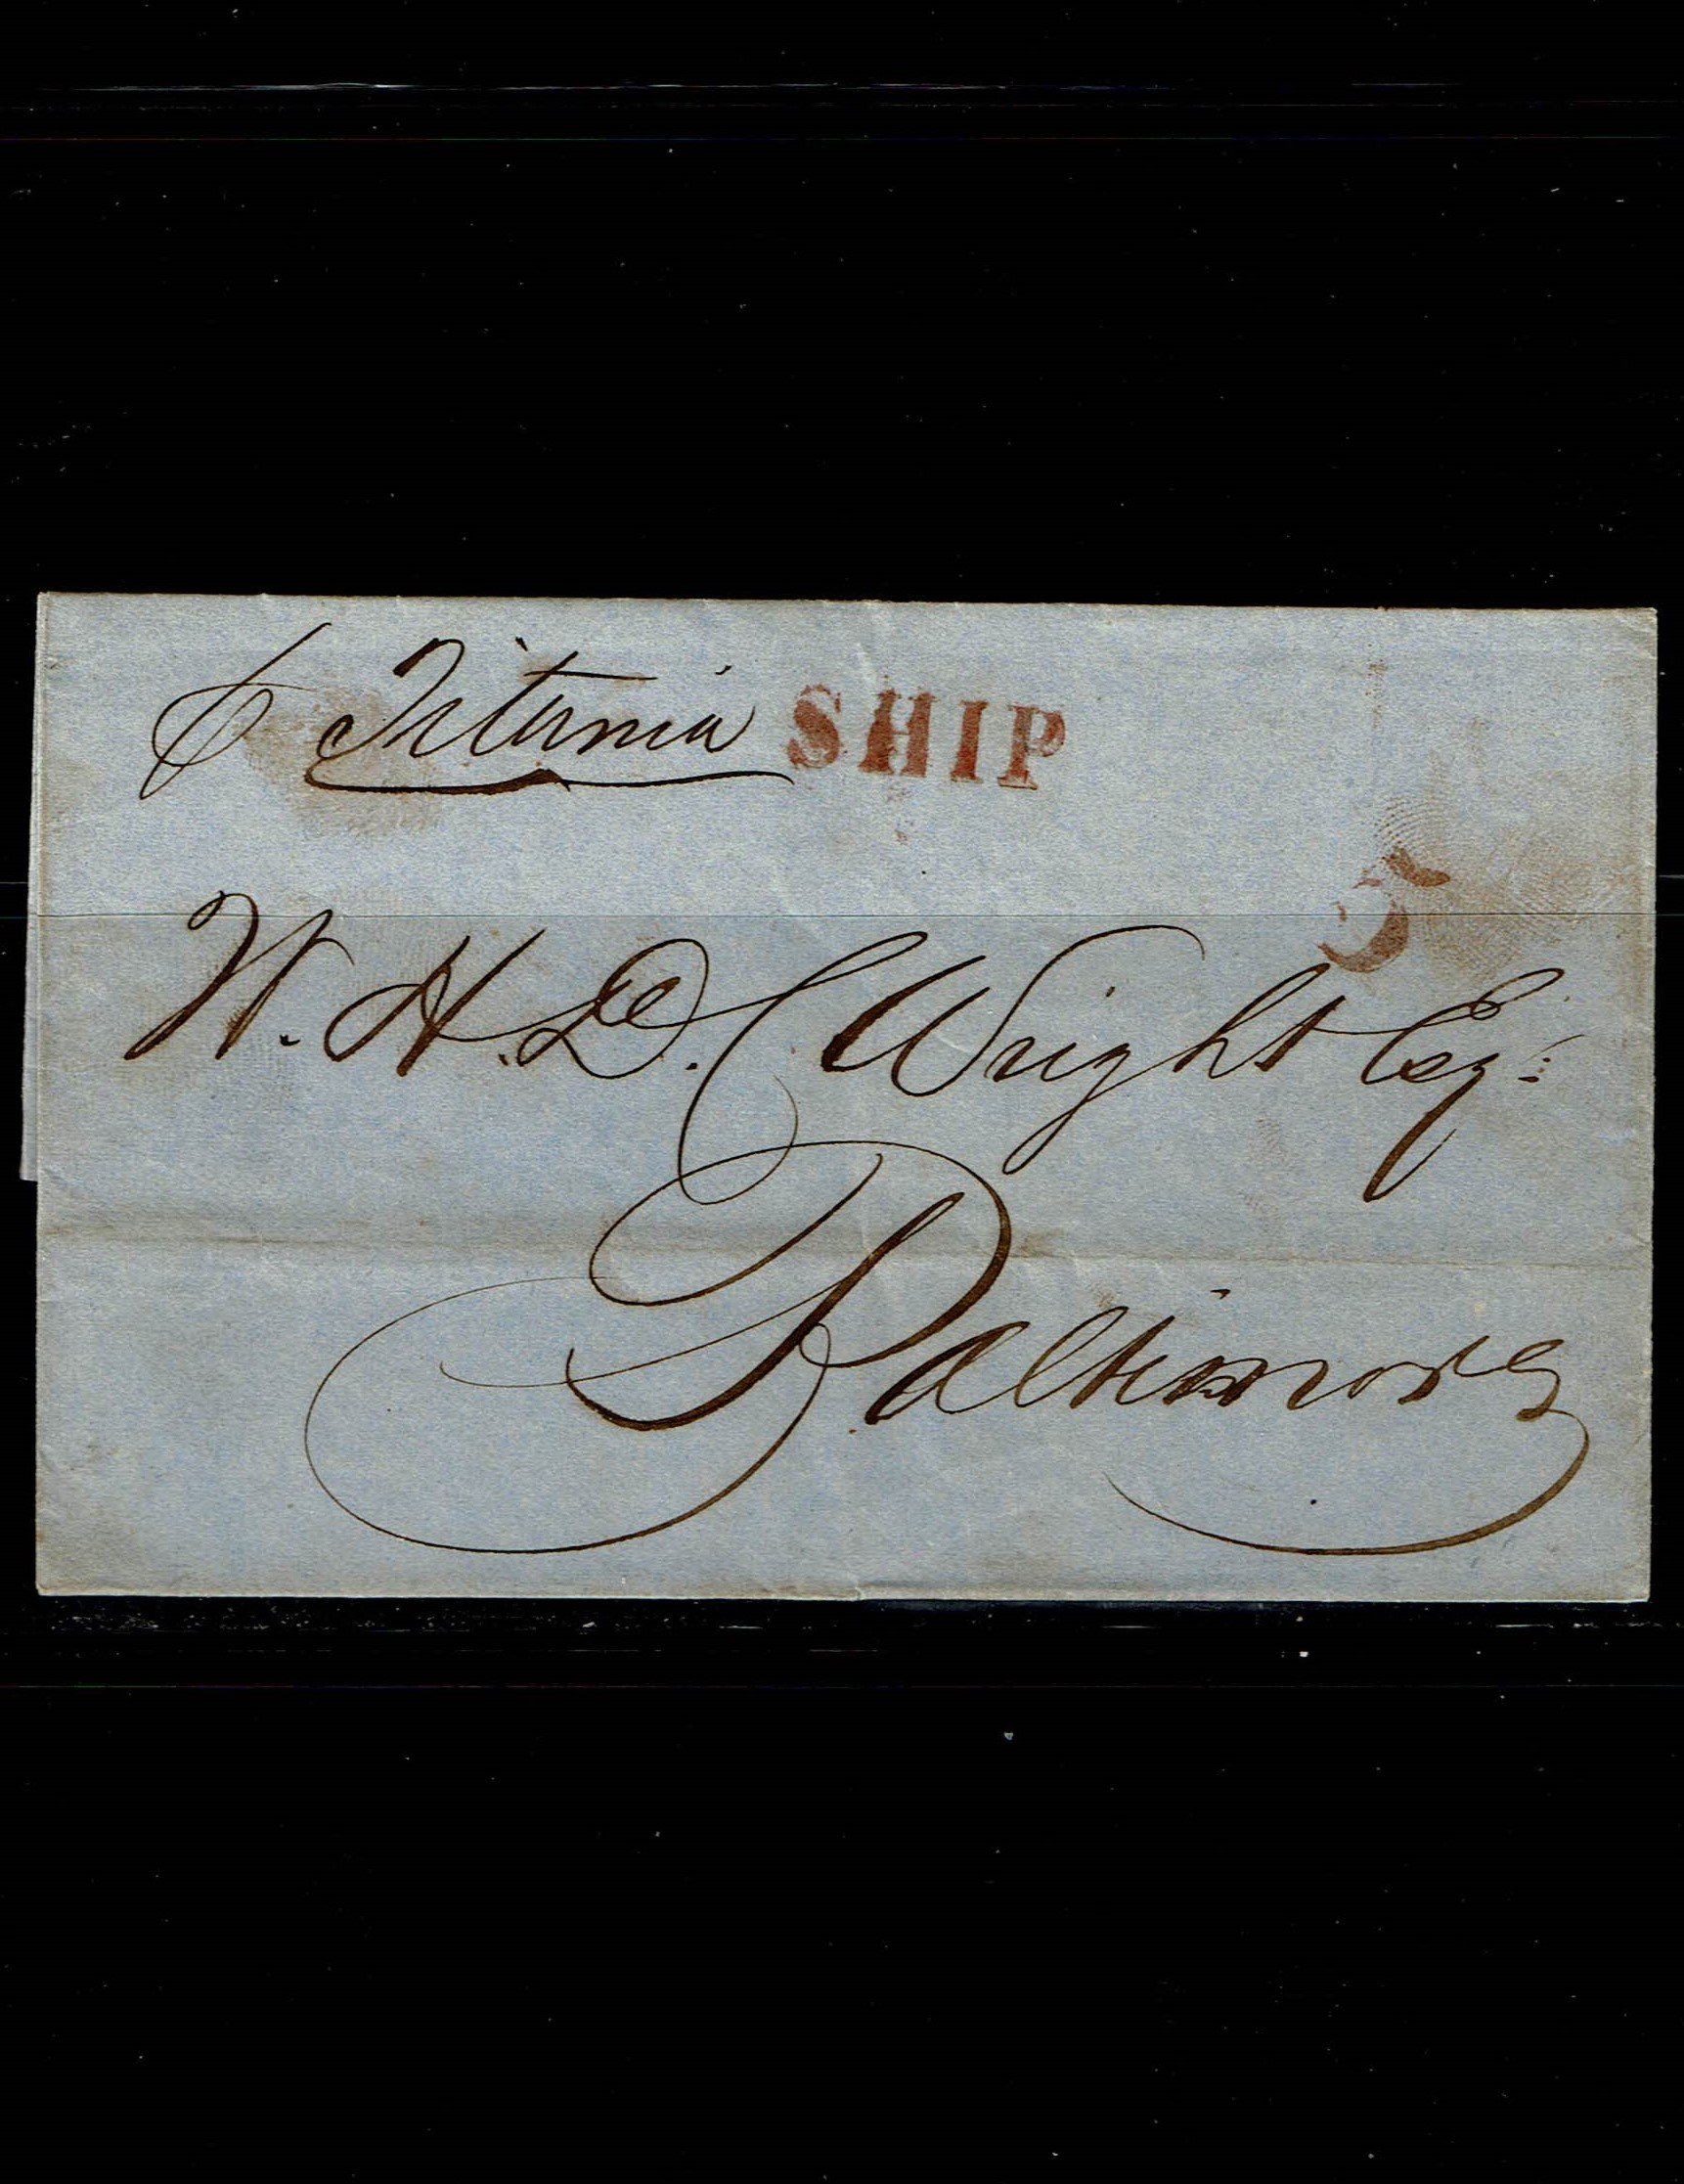 p Titania SHIP
5
W. H. D. C Wright Esq:
Baltimore